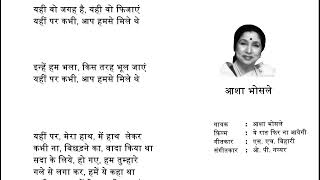 यही वो जगह है, यही वो फिजाएं
यहीं पर कभी, आप हमसे मिले थे
इन्हें हम भला, किस तरह भूल जाएं
यहीं पर कभी, आप हमसे मिले थे
यहीं पर, मेरा हाथ, में हाथ लेकर
कभी ना, बिछड़ने का, वादा किया था
सदा के लिये, हो गए, हम तुम्हारे
गले से लगा कर, हमें ये कहा था
आशा भोसले
गायक : आशा भोसले
फिल्म : ये रात फिर ना आयेगी
गीतकार : एस. एच. बिहारी
संगीतकार : ओ. पी. नय्यर